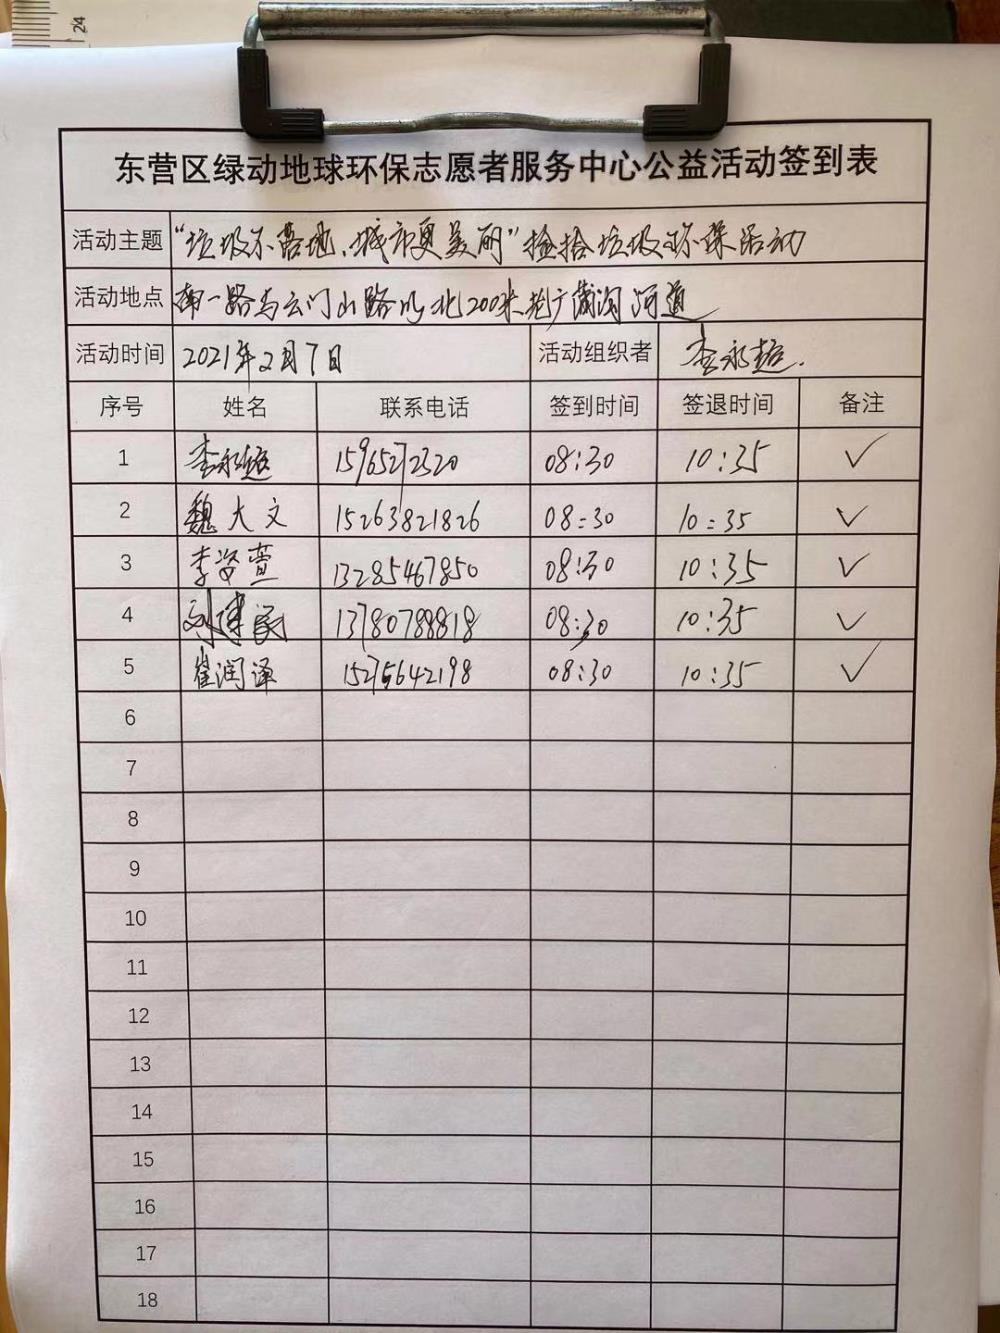 24
东营区绿动地球环保志愿者服务中心公益活动签到表
活动主题 "垃圾不落地、城市更美丽"捡拾垃圾环保活动
活动地点 南一路与云门山路以北200米老广蒲沟河道
活动时间 2021年2月7日 活动组织者 李永超.
序号 姓名 联系电话 签到时间 签退时间 备注
1 李永超 15965272320 08:30 10:35 ✓
2 魏大文 15263821826 08:30 10:35 ✓
3 李姿萱 13285467850 08:30 10:35 ✓
4 刘 13780788818 08:30 10:35 ✓
5 崔润泽 15275642198 08:30 10:35 ✓
6
7
8
9
10
11
12
13
14
15
16
17
18